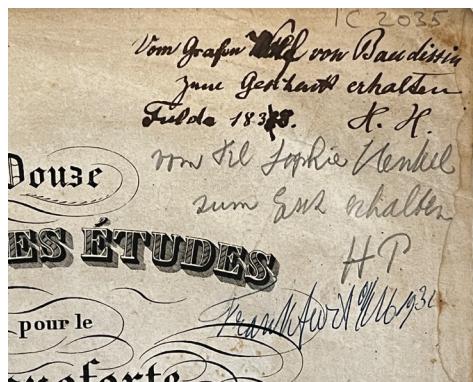 IC 2035
Vom Grafen Wolf von Baudissin
zum Geschenk erhalten
Fulda 1838. H. H.
von Frl Sophie Henkel
zum Gesch erhalten
HP
Frankfurt 1931
Douze
ES ÉTUDES
pour le
anoforte